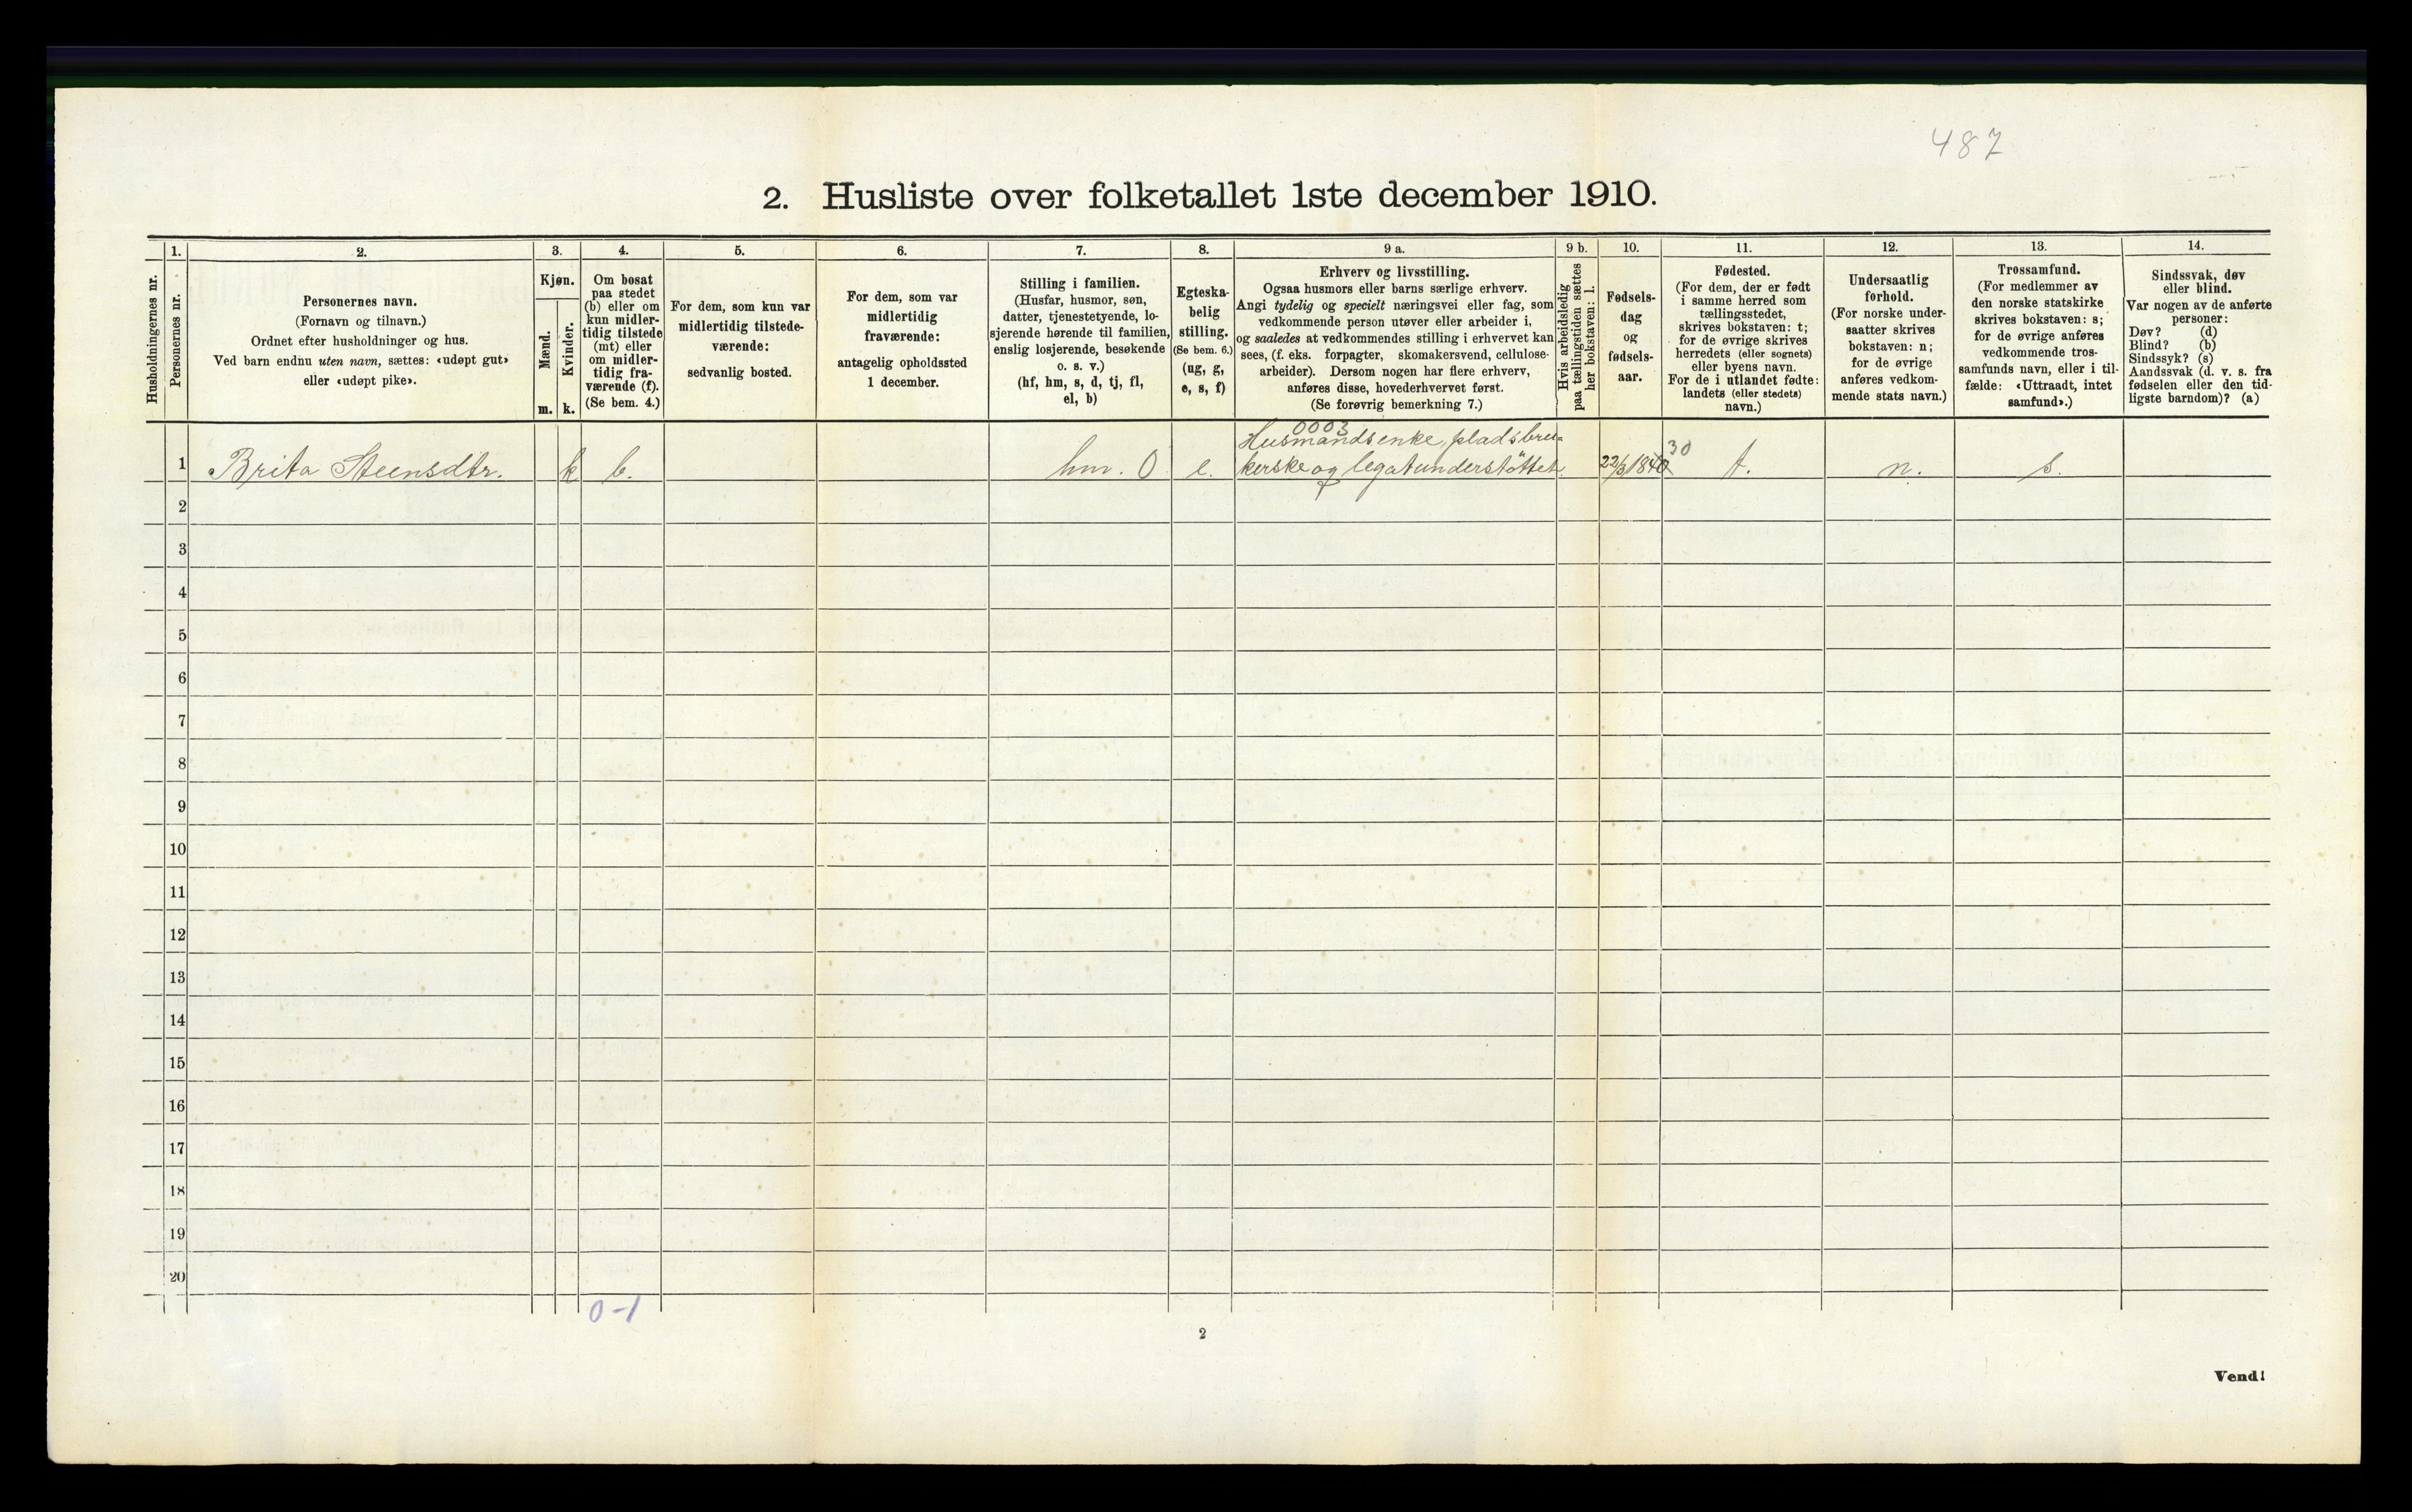 487
2. Husliste over folketallet 1ste december 1910.
Husholdningernes nr.
1.
Personernes nr.
2.
Personernes navn.
(Fornavn og tilnavn.)
Ordnet efter husholdninger og hus.
Ved barn endnu uten navn, sættes: «udøpt gut»
eller «udøpt pike».
3.
Kjøn.
Mænd.
Kvinder.
m.
k.
4.
Om bosat
paa stedet
(b) eller om
kun midler-
tidig tilstede
(mt) eller
om midler-
tidig fra-
værende (f).
(Se bem. 4.)
5.
For dem, som kun var
midlertidig tilstede-
værende:
sedvanlig bosted.
6.
For dem, som var
midlertidig
fraværende:
antagelig opholdssted
1 december.
7.
Stilling i familien.
(Husfar, husmor, søn,
datter, tjenestetyende, lo-
sjerende hørende til familien,
enslig losjerende, besøkende
o. s. v.)
(hf, hm, s, d, tj, fl,
el, b)
8.
Egteska-
belig
stilling.
(Se bem. 6.)
(ug, g,
e, s, f)
9 a.
Erhverv og livsstilling.
Ogsaa husmors eller barns særlige erhverv.
Angi tydelig og specielt næringsvei eller fag, som
vedkommende person utøver eller arbeider i,
og saaledes at vedkommendes stilling i erhvervet kan
sees, (f. eks. forpagter, skomakersvend, cellulose-
arbeider). Dersom nogen har flere erhverv,
anføres disse, hovederhvervet først.
(Se forøvrig bemerkning 7.)
9 b.
Hvis arbeidsledig
paa tællingstiden sættes
her bokstaven: l.
10.
Fødsels-
dag
og
fødsels-
aar.
11.
Fødested.
(For dem, der er født
i samme herred som
tællingsstedet,
skrives bokstaven: t;
for de øvrige skrives
herredets (eller sognets)
eller byens navn.
For de i utlandet fødte:
landets (eller stedets)
navn.)
12.
Undersaatlig
forhold.
(For norske under-
saatter skrives
bokstaven: n;
for de øvrige
anføres vedkom-
mende stats navn.)
13.
Trossamfund.
(For medlemmer av
den norske statskirke
skrives bokstaven: s;
for de øvrige anføres
vedkommende tros-
samfunds navn, eller i til-
fælde: «Uttraadt, intet
samfund».)
14.
Sindssvak, døv
eller blind.
Var nogen av de anførte
personer:
Døv? (d)
Blind? (b)
Sindssyk? (s)
Aandssvak (d. v. s. fra
fødselen eller den tid-
ligste barndom)? (a)
0003
Husmandsenke, pladsbru-
1 Brita Steensdtr. k b. hm. 0 e. kerske og legatunderstöttet 22/3 1840 30 t. n. s.
2
3
4
5
6
7
8
9
10
11
12
13
14
15
16
17
18
19
20
0-1
2
Vend!